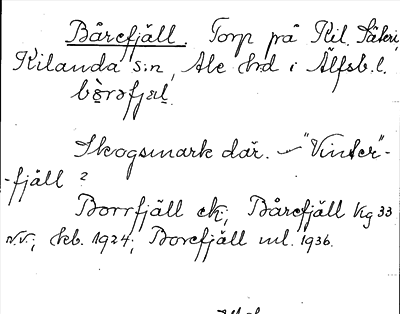 Bårefjäll. Torp på Kil. Säteri,
Kilanda s:n, Ale hrd i Älfsb. l.
Skogsmark där. – "Vinter"-
-fjäll ?
Borrfjäll ek; Bårefjäll Kg 33
N.V.; hkb. 1924; Borefjäll ml. 1936.